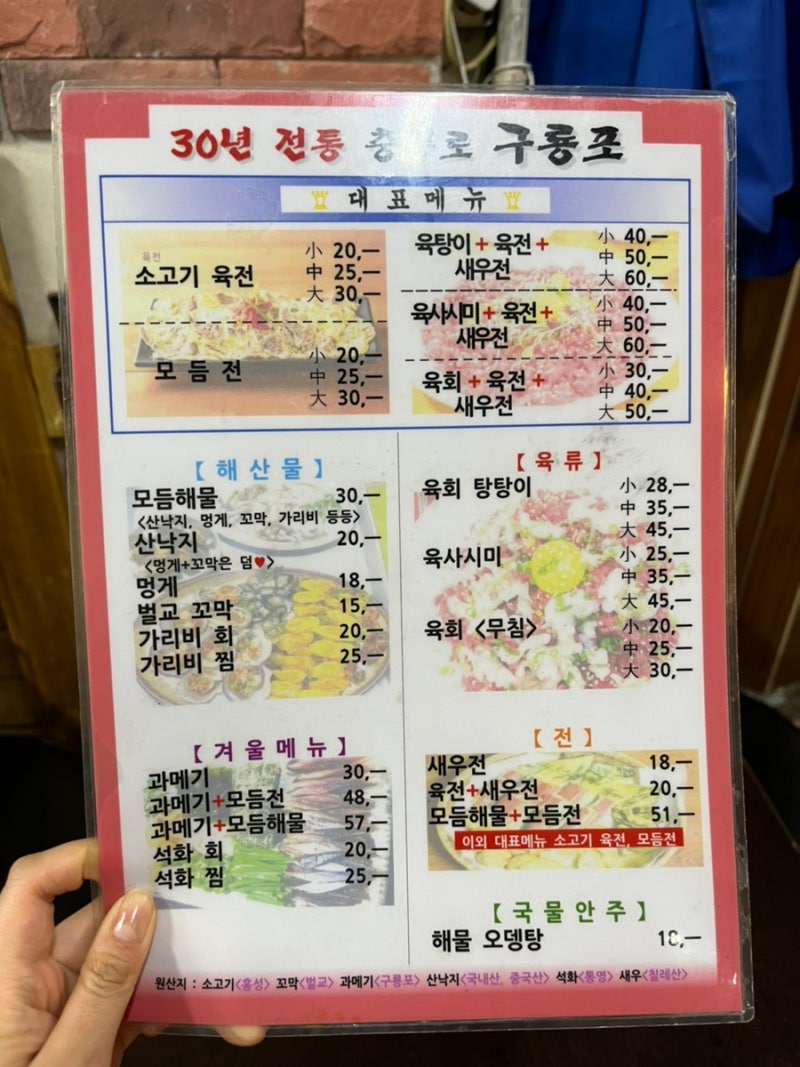 30년 전통 충무로 구룡포
대표메뉴
육전
소고기 육전
小 20,—
中 25,—
大 30,—
모듬전
小 20,—
中 25,—
大 30,—
육탕이+육전+
새우전
小 40,—
中 50,—
大 60,—
육사시미+육전+
새우전
小 40,—
中 50,—
大 60,—
육회+육전+
새우전
小 30,—
中 40,—
大 50,—
【해산물】
모듬해물 30,—
<산낙지, 멍게, 꼬막, 가리비 등등>
산낙지 20,—
<멍게+꼬막은 덤♥>
멍게 18,—
벌교 꼬막 15,—
가리비 회 20,—
가리비 찜 25,—
【육류】
육회 탕탕이 小 28,—
中 35,—
大 45,—
육사시미 小 25,—
中 35,—
大 45,—
육회 <무침> 小 20,—
中 25,—
大 30,—
【겨울메뉴】
과메기 30,—
과메기+모듬전 48,—
과메기+모듬해물 57,—
석화 회 20,—
석화 찜 25,—
【전】
새우전 18,—
육전+새우전 20,—
모듬해물+모듬전 51,—
이외 대표메뉴 소고기 육전, 모듬전
【국물안주】
해물 오뎅탕 18,—
원산지 : 소고기<홍성> 꼬막<벌교> 과메기<구룡포> 산낙지<국내산, 중국산> 석화<통영> 새우<칠레산>